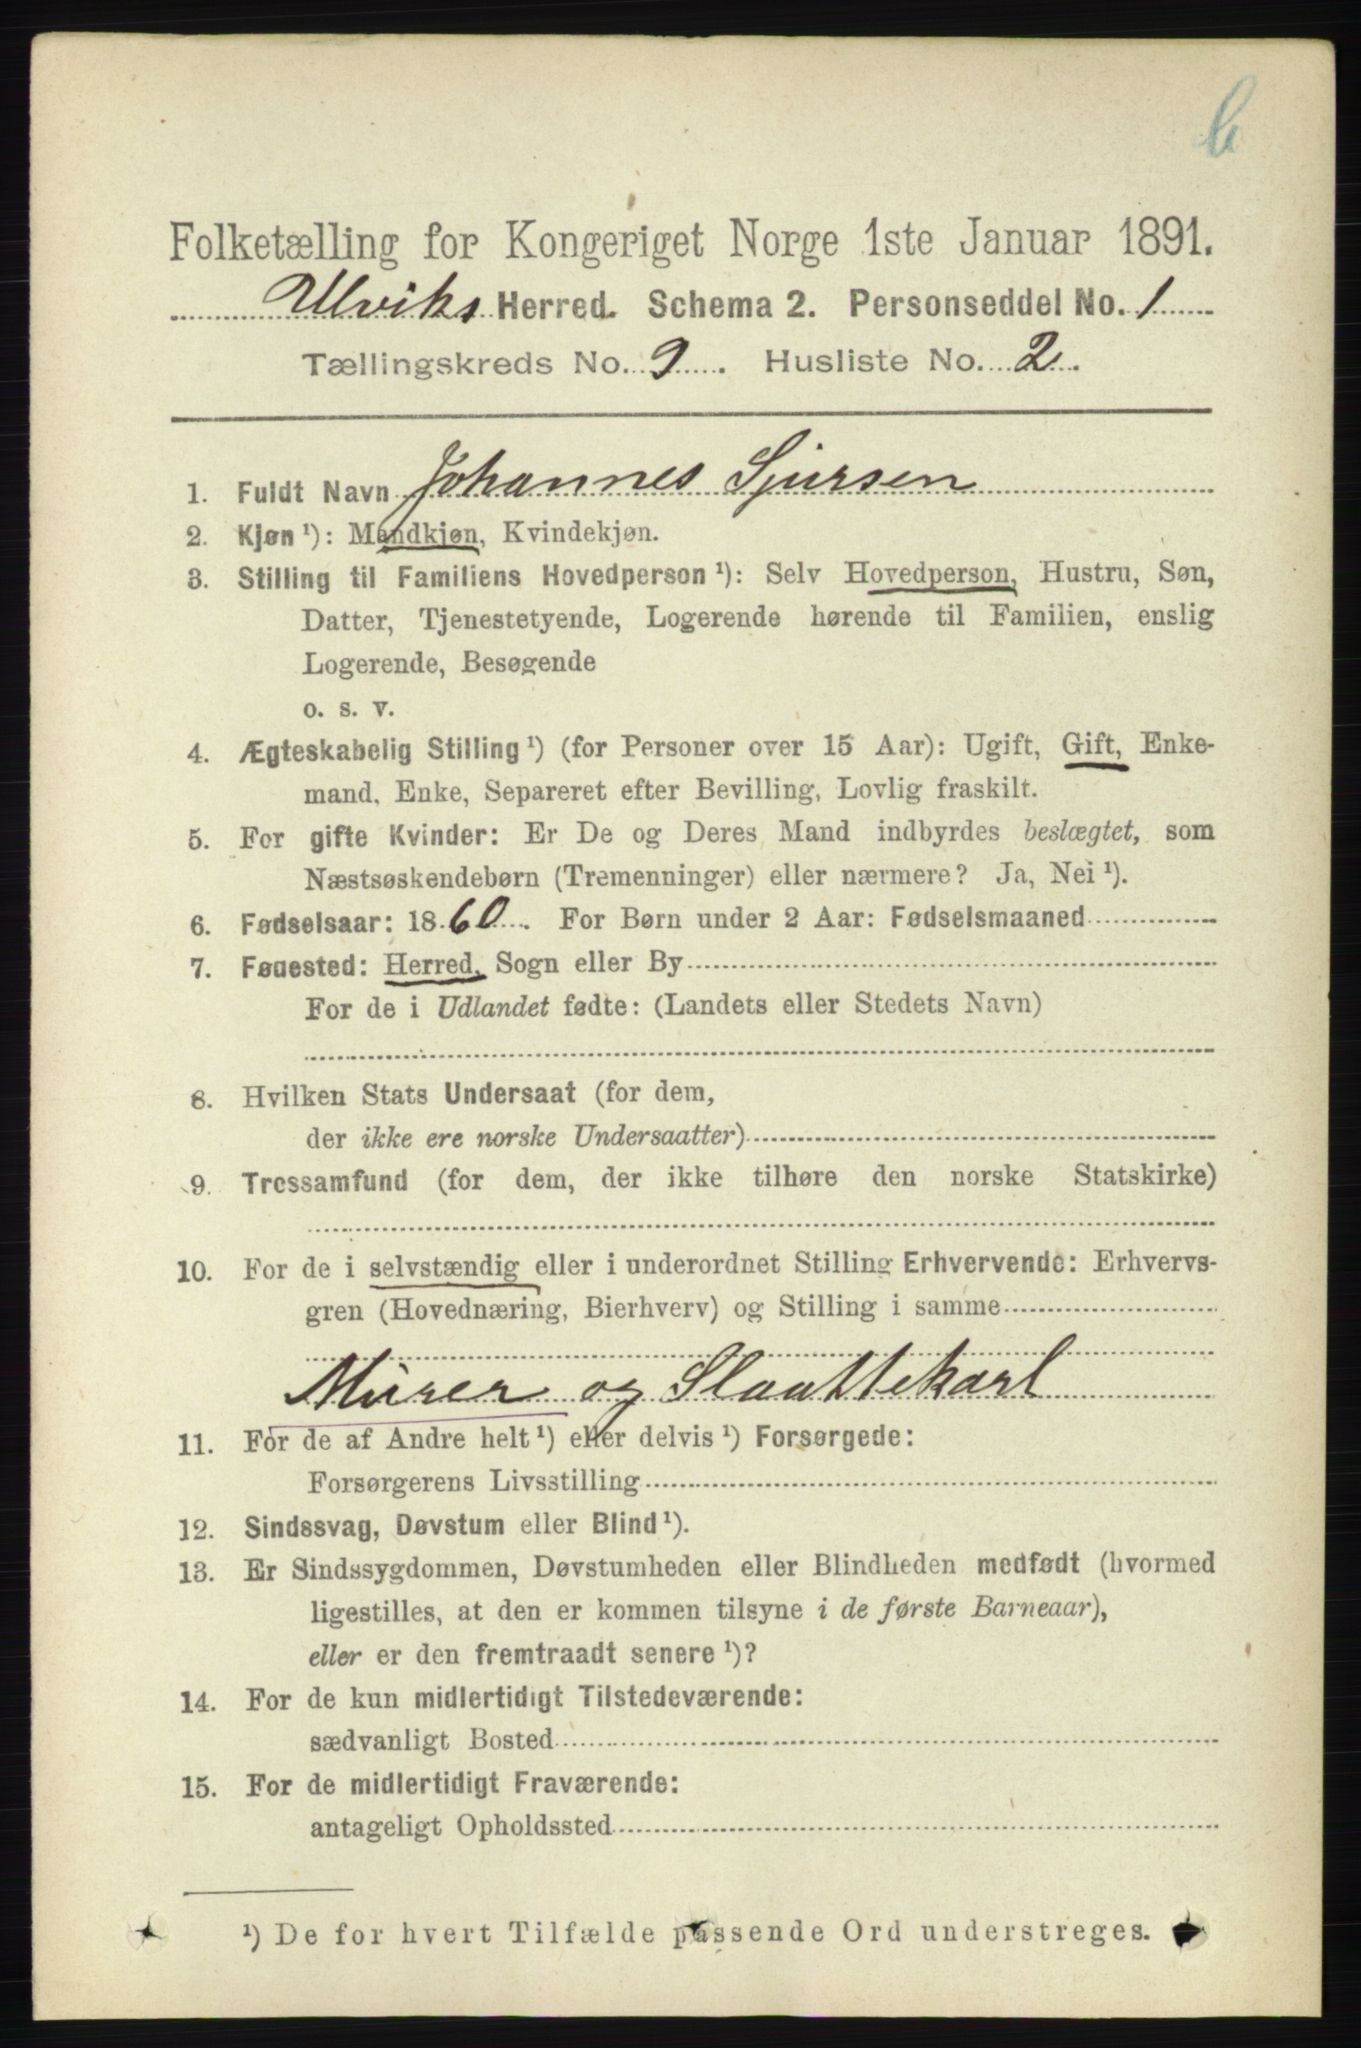 b
Folketælling for Kongeriget Norge 1ste Januar 1891.
Ulviks Herred. Schema 2. Personseddel No. 1
Tællingskreds No. 9. Husliste No. 2.
1. Fuldt Navn Johannes Sjursen
2. Kjøn ¹): Mandkjøn, Kvindekjøn.
3. Stilling til Familiens Hovedperson ¹): Selv Hovedperson, Hustru, Søn,
Datter, Tjenestetyende, Logerende hørende til Familien, enslig
Logerende, Besøgende
o. s. v.
4. Ægteskabelig Stilling ¹) (for Personer over 15 Aar): Ugift, Gift, Enke-
mand, Enke, Separeret efter Bevilling, Lovlig fraskilt.
5. For gifte Kvinder: Er De og Deres Mand indbyrdes beslægtet, som
Næstsøskendebørn (Tremenninger) eller nærmere? Ja, Nei ¹).
6. Fødselsaar: 1860. For Børn under 2 Aar: Fødselsmaaned
7. Føuested: Herred, Sogn eller By
For de i Udlandet fødte: (Landets eller Stedets Navn)
8. Hvilken Stats Undersaat (for dem,
der ikke ere norske Undersaatter)
9. Trossamfund (for dem, der ikke tilhøre den norske Statskirke)
10. For de i selvstændig eller i underordnet Stilling Erhvervende: Erhvervs-
gren (Hovednæring, Bierhverv) og Stilling i samme
Murer og Slaattekarl
11. For de af Andre helt ¹) eller delvis ¹) Forsørgede:
Forsørgerens Livsstilling
12. Sindssvag, Døvstum eller Blind ¹).
13. Er Sindssygdommen, Døvstumheden eller Blindheden medfødt (hvormed
ligestilles, at den er kommen tilsyne i de første Barneaar),
eller er den fremtraadt senere ¹)?
14. For de kun midlertidigt Tilstedeværende:
sædvanligt Bosted
15. For de midlertidigt Fraværende:
antageligt Opholdssted
¹) De for hvert Tilfælde passende Ord understreges.